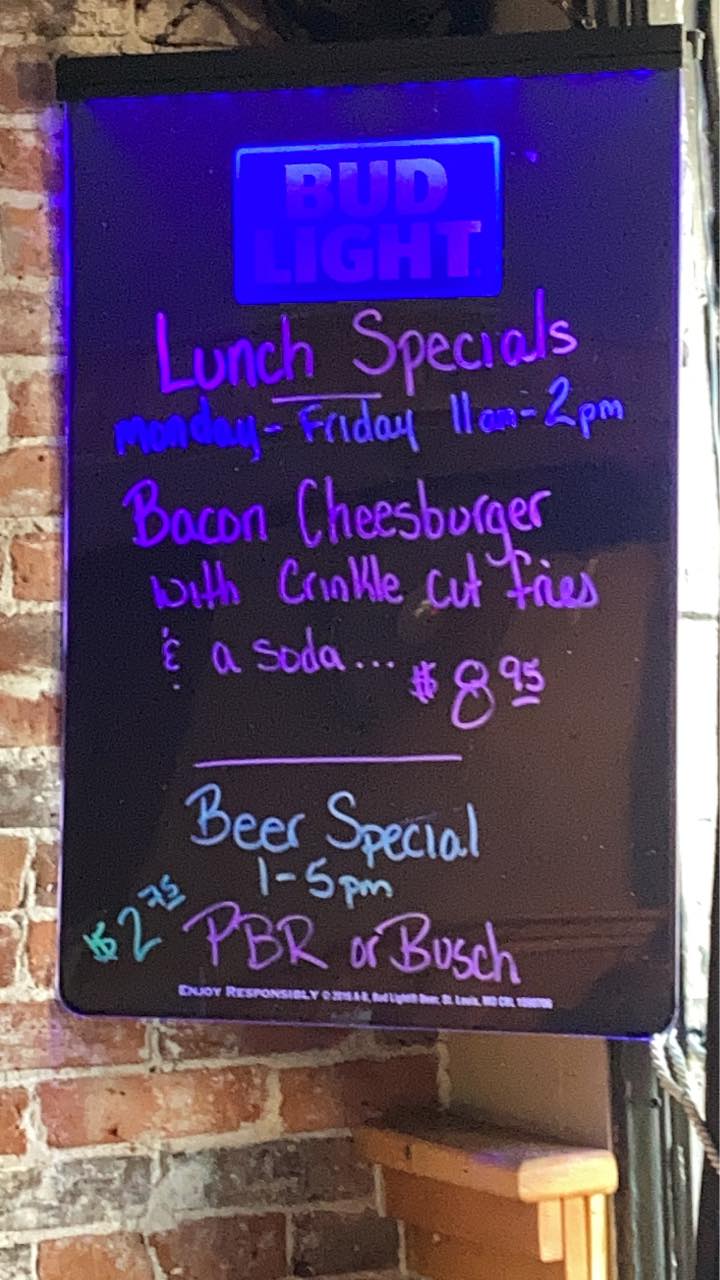 BUD
LIGHT
Lunch Specials
Monday - Friday 11am - 2pm
Bacon Cheesburger
with Crinkle cut fries
& a soda... $8.95
Beer Special
1-5pm
$2.75 PBR or Busch
ENJOY RESPONSIBLY © 2015 A-B, Bud Light® Beer, St. Louis, MO